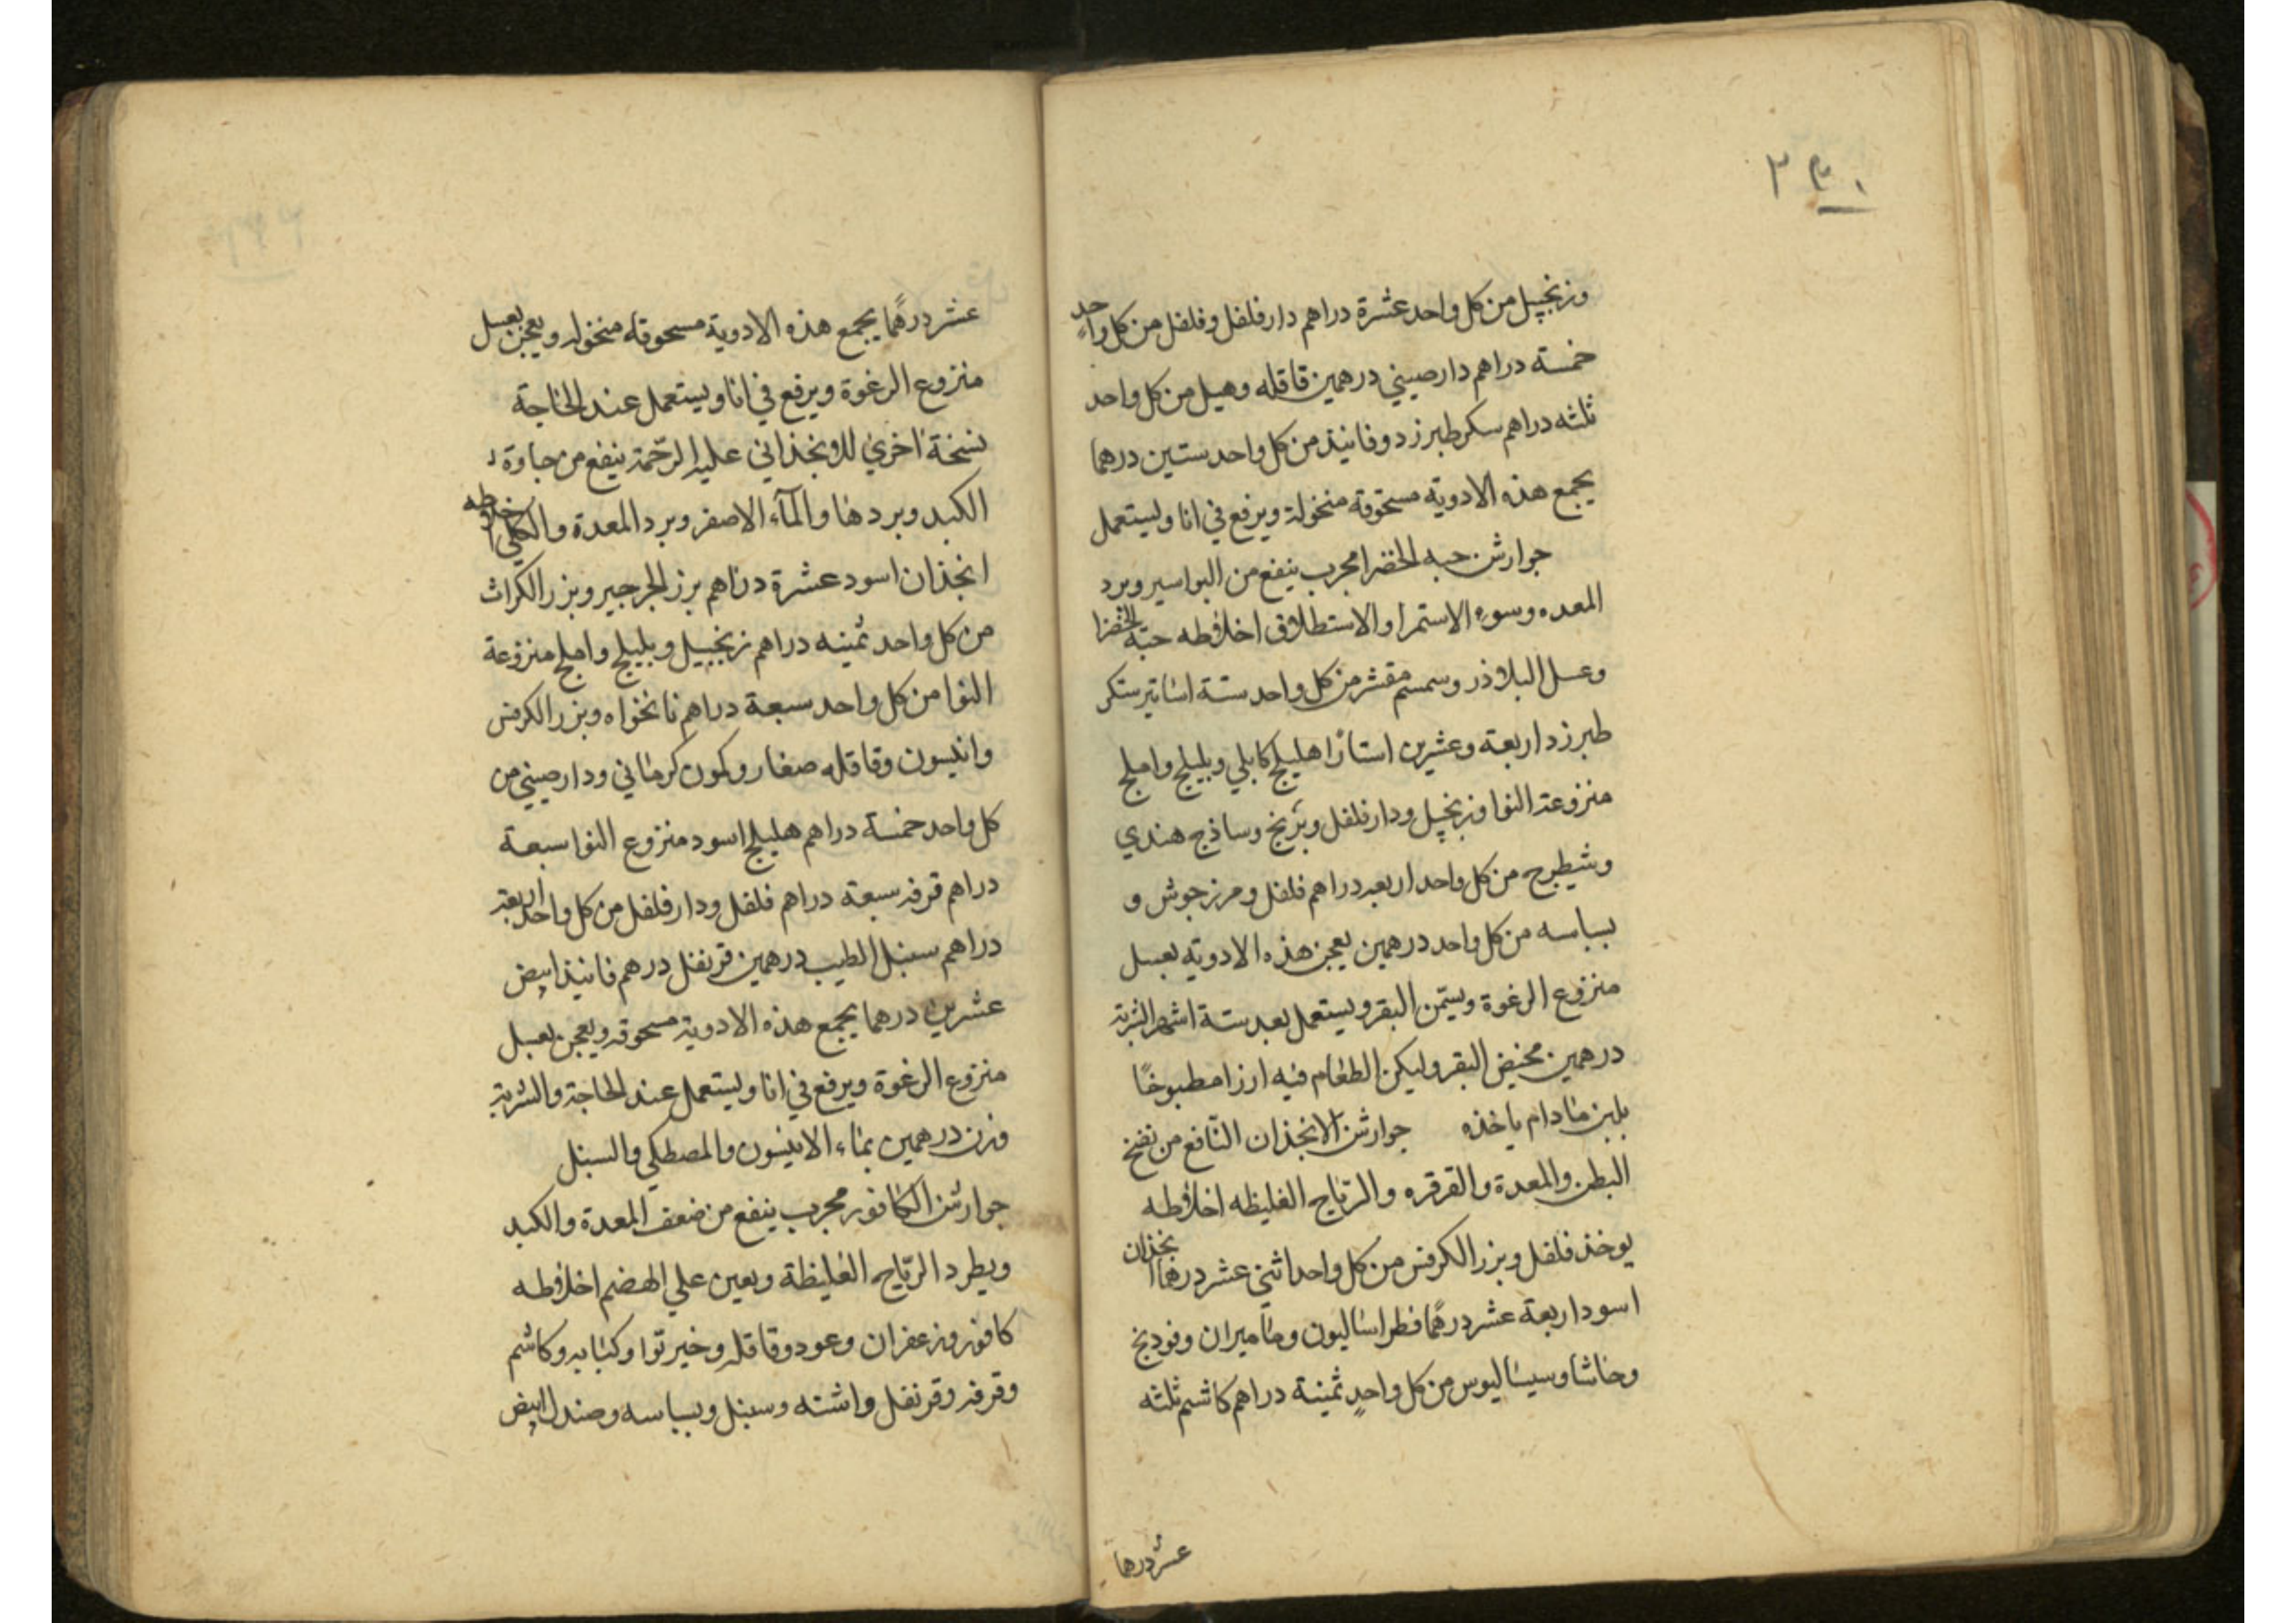 وزنجبيل من كل واحد عشرة دراهم دارفلفل وفلفل من كل واحد
خمسة دراهم دارصيني درهمين قاقله وهيل من كل واحد
ثلثه دراهم سكر طبرزد وفانيذ من كل واحد ستين درهما
يجمع هذه الادويه مسحوقة منخولة ويرفع في انا ويستعمل
جوارشن حبه الخضرا مجرب ينفع من البواسير وبرد
المعده وسوء الاستمرا والاستطلاق اخلاطه حبّه الخضرا
وعسل البلاذر وسمسم مقشر من كل واحد ستة اساتير سكر
طبرزد اربعة وعشرين استارًا هليلج كابلي وبليلج واملج
منزوعة النوا وزنجبيل ودارفلفل وبرنج وساذج هندي
وشيطرج من كل واحد اربعه دراهم فلفل ومرزجوش و
بسباسه من كل واحد درهمين يعجن هذه الادويه بعسل
منزوع الرغوة وبسمن البقر ويستعمل بعد ستة اشهر الشربة
درهمين بمخيض البقر وليكن الطعام فيه ارزا مطبوخًا
بلبن مادام ياخذه جوارشن الانجذان النافع من نفخ
البطن والمعدة والقرقره والرياح الغليظه اخلاطه
يوخذ فلفل وبزر الكرفس من كل واحد اثني عشر درهما انجذان
اسود اربعة عشر درهمًا فطراساليون وماميران وفودنج
وحاشا وسيساليوس من كل واحدٍ ثمنية دراهم كاشم ثلثه
عشر درهما
عشر درهمًا يجمع هذه الادوية مسحوقه منخوله ويعجن بعسل
منزوع الرغوة ويرفع في انا ويستعمل عند الحاجة
نسخة اخري عليه الرحمة ينفع من جساوة
الكبد وبردها والمآء الاصفر وبرد المعدة والكلي اخلاطه
انجذان اسود عشرة دراهم بزر الجرجير وبزر الكراث
من كل واحد ثمنيه دراهم زنجبيل وبليلج واملج منزوعة
النوا من كل واحد سبعة دراهم نانخواه وبزر الكرفس
وانيسون وقاقله صغار وكمون كرماني ودارصيني من
كل واحد خمسة دراهم هليلج اسود منزوع النوا سبعة
دراهم قرفه سبعة دراهم فلفل ودارفلفل من كل واحد اربعة
دراهم سنبل الطيب درهمين قرنفل درهم فانيذ ابيض
عشرين درهما يجمع هذه الادوية مسحوقه ويعجن بعسل
منزوع الرغوة ويرفع في انا ويستعمل عند الحاجة والشربة
وزن درهمين بماء الانيسون والمصطكي والسنبل
جوارشن الكافور مجرب ينفع من ضعف المعدة والكبد
ويطرد الرياح الغليظة ويعين علي الهضم اخلاطه
كافور وزعفران وعود وقاقله وخيربوا وكبابه وكاشم
وقرفه وقرنفل واشنه وسنبل وبسباسه وصندل ابيض